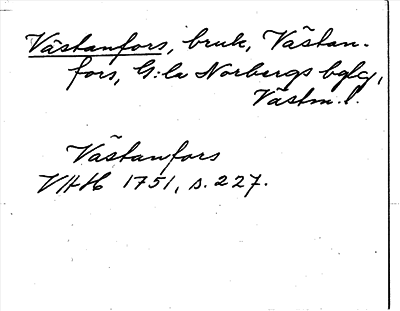 Västanfors, bruk, Västan-
fors, G:la Norbergs bglg,
Västm. l.
Västanfors
VHH 1751, s. 227.